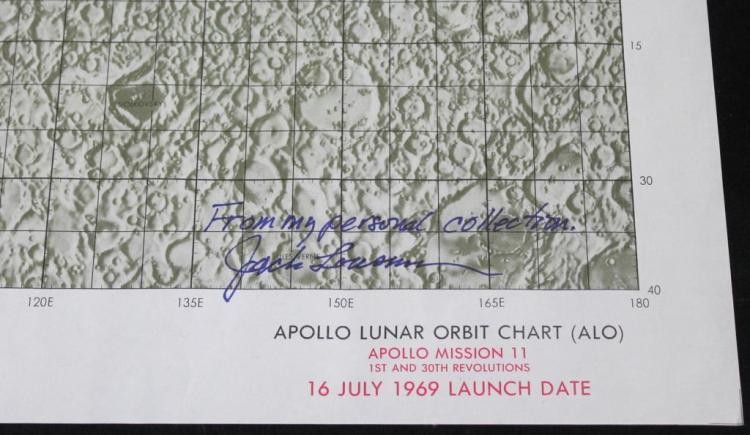 15
TSIOLKOVSKY
30
From my personal collection.
Jack Lousma
JULES VERNE
40
120E 135E 150E 165E 180
APOLLO LUNAR ORBIT CHART (ALO)
APOLLO MISSION 11
1ST AND 30TH REVOLUTIONS
16 JULY 1969 LAUNCH DATE